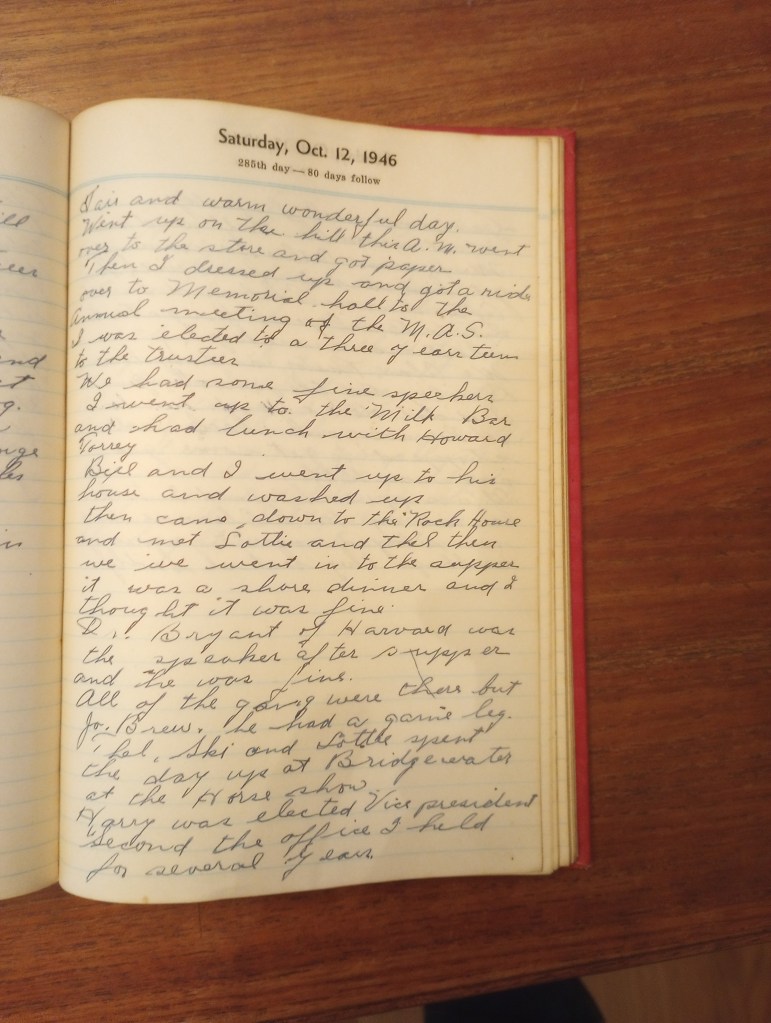 Saturday, Oct. 12, 1946
285th day — 80 days follow
Fair and warm wonderful day.
Went up on the hill this A.M. went
over to the store and got paper
Then I dressed up and got a ride
over to Memorial hall to the
Annual meeting of the M.A.S.
I was elected to a three years term
to the trustees
We had some fine speekers
I went up to the Milk Bar
and had lunch with Howard
Torrey
Bill and I went up to his
house and washed up
then came down to the Rock House
and met Lottie and thel then
we we went in to the supper
it was a shore dinner and I
thought it was fine
Dr. Bryant of Harvard was
the speaker after supper
and he was fine.
All of the gang were there but
Jo. Brew. he had a game leg.
Thel, Ski and Lottie spent
the day up at Bridgewater
at the Horse show
Harry was elected Vice president
second the office I held
for several years